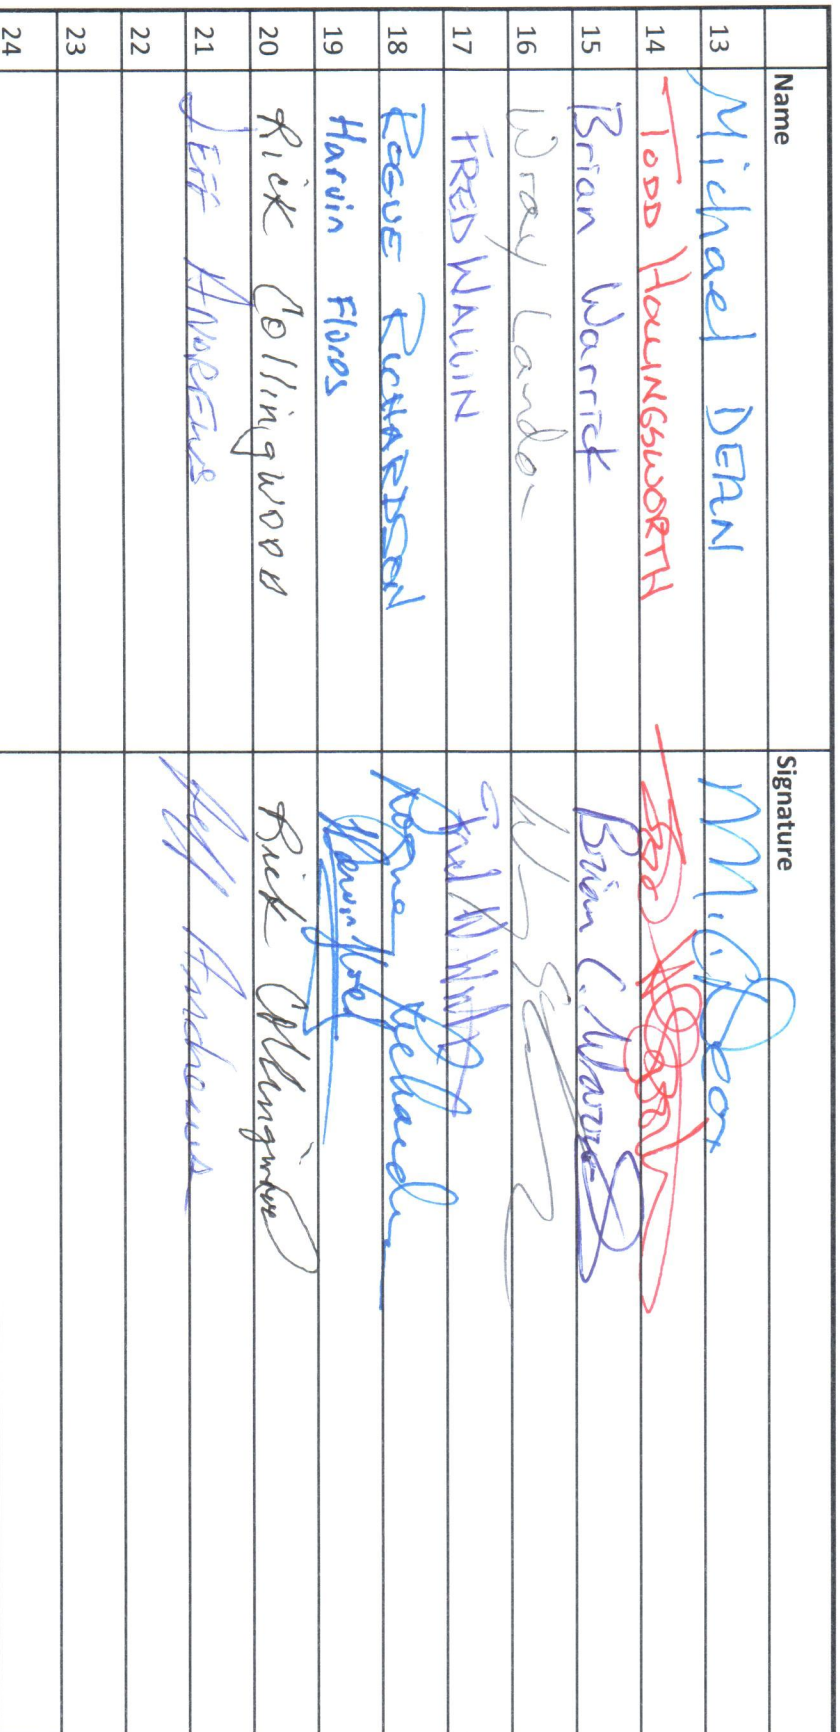 Name Signature
13 Michael DEAN
14 TODD HOLLINGSWORTH
15 Brian Warrick Brian C. Warrick
16 Wray Landon
17 FRED WALLIN
18 ROGUE RICHARDSON
19 Harvin Flores Harvin Flores
20 Rick Collingwood Rick Collingwood
21 JEFF ANDREWS Jeff Andrews
22
23
24